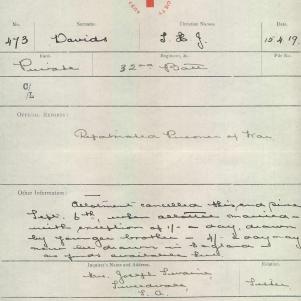 No. Surname. Christian Names. Date.
473 Davids L. H. J. 15.4.19.
Rank. Regiment, &c. File No.
Private 32nd Batt
C/
/L
OFFICIAL REPORTS:
Repatriated Prisoner of War
Other Information:
Allotment cancelled this end since
Sept. 6th, when allottee married
with exception of 1/- a day, drawn
by younger brother - 1/- a day may
now be drawn in England
as funds available
Inquirer's Name and Address. Relation.
Mrs. Joseph Sister
S. A.